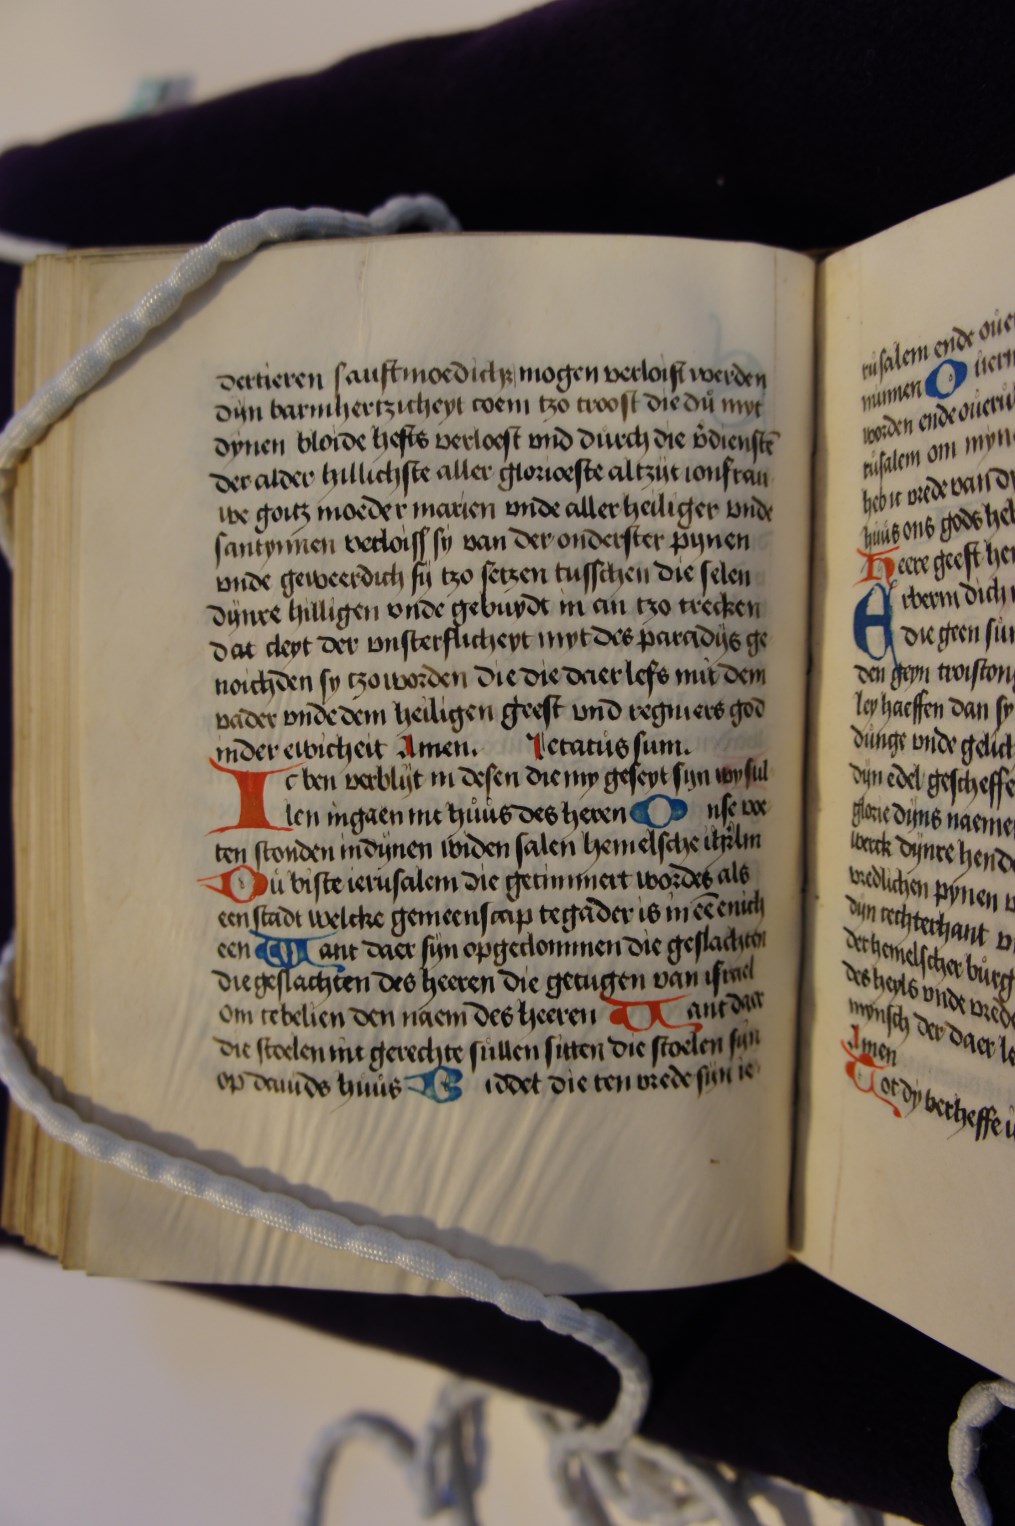 dertieren sanftmoedichz mogen verloist werden
dyn barmhertzicheyt coem tzo troost die dü myt
dynen bloide hefts verloest vnd durch die v̄dienstē
der alder hillichste aller glorioeste altzijt ionfrau
we gotz moeder marien vnde aller heiliger vnde
santynnen verloiss sy van der onderster pynen
vnde geweerdich sij tzo setzen tusschen die selen
dynre hilligen vnde gebuydt in an tzo trecken
dat cleyt der vnsterflicheyt myt des paradijs ge
noichden sy tzo worden die die daer lefs mit dem
vader vnde dem heiligen geest vnd regniers god
inder ewicheit Amen. Letatus sum.
Ic ben verblijt in desen die my geseyt sijn wy sul
len ingaen int hüüs des heren Onse voe
ten stonden in dijnen widen salen hemelsche ihrlm
Dü biste ierusalem die getimmert wordes als
een stadt welcke gemeenscap tegader is in eē enich
een Want daer sijn opgeclommen die geslachten
die geslachten des heeren die getugen van israel
om te belien den naem des heeren Want daer
die stoelen int gerechte süllen sitten die stoelen sijn
op dauids hüüs Biddet die ten vrede sijn ie
rusalem ende
minnen O
worden ende
rusalem om
heb ic vrede van
hüüs ons gods
Heere geeft
Erberm dich
die geen
den geyn
ley haeffen dan sy
dünge vnde
dijn edel
glorie dijns
werck dynre
vredlichen pynen
dyn rechterhant
der hemelscher
des heyls vnde
mynsch der daer
Amen
Tot dy verheffe